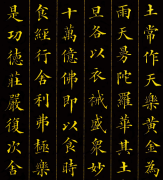 土常作天樂黃金為
雨天曼陀羅華其土
旦各以衣裓盛衆妙
十萬億佛即以食時
食經行舍利弗極樂
是功德莊嚴復次舍